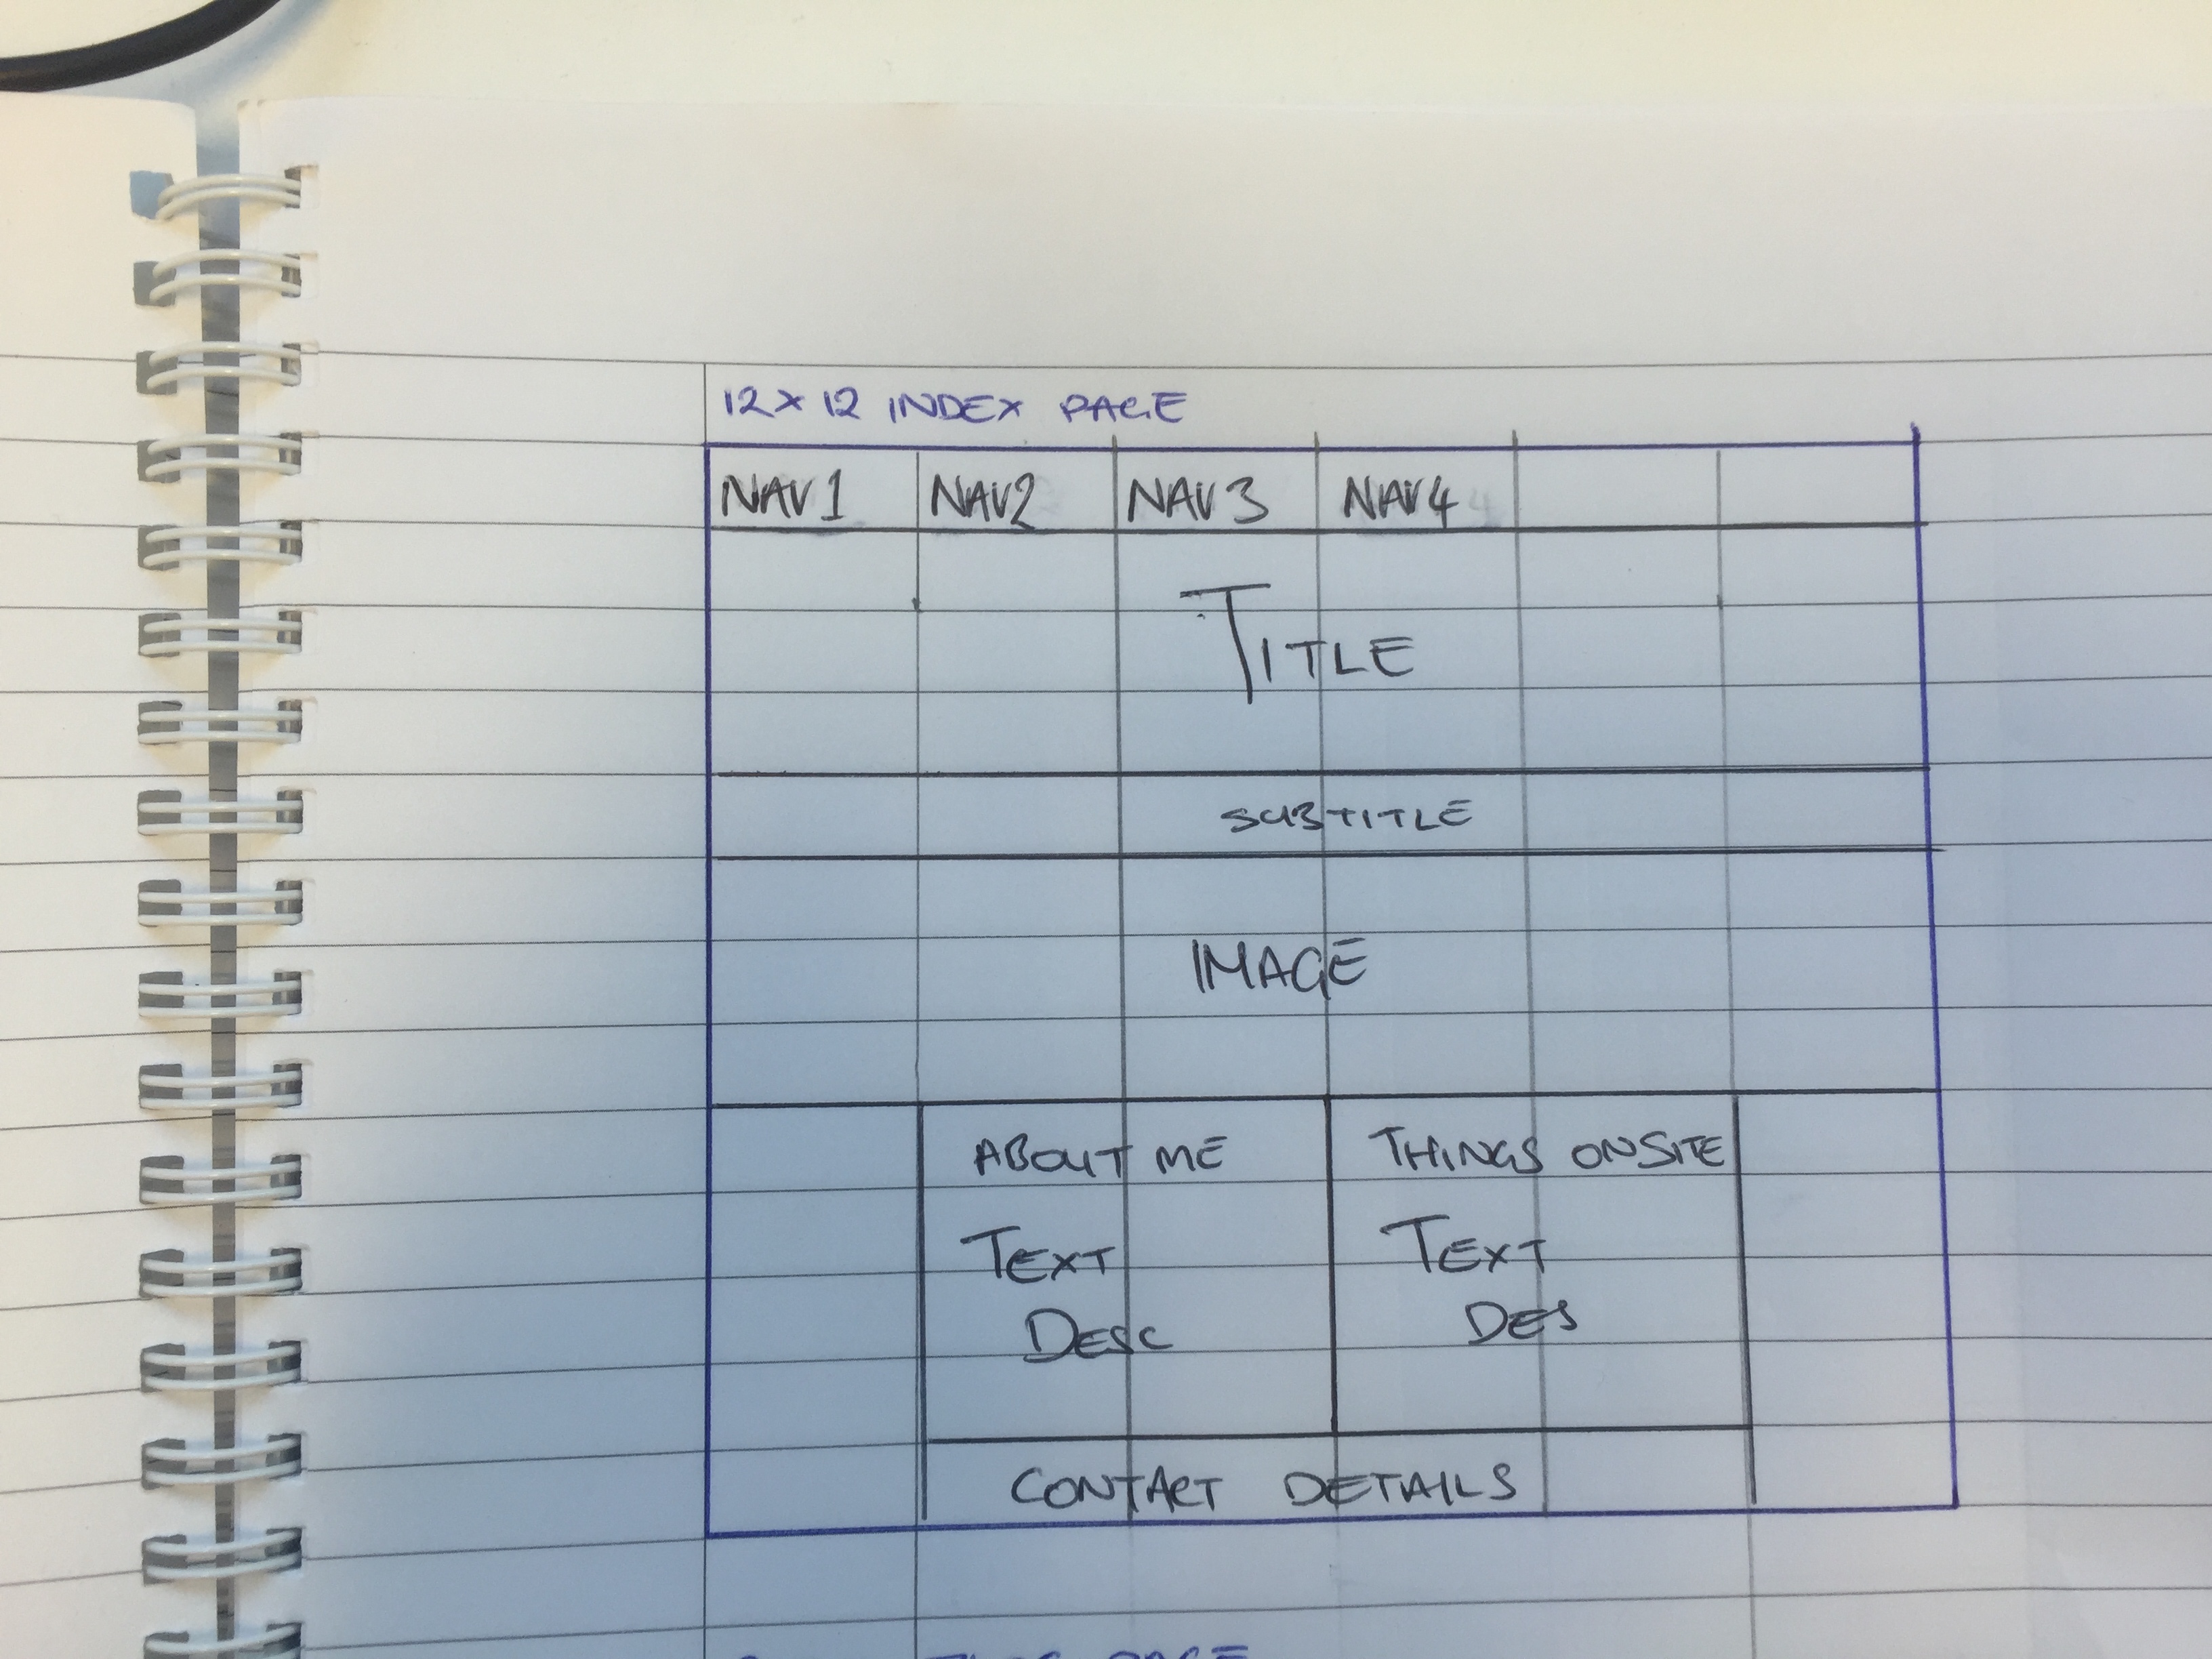 12 x 12 INDEX PAGE
NAV1 NAV2 NAV3 NAV4
TITLE
SUBTITLE
IMAGE
ABOUT ME THINGS ONSITE
TEXT TEXT
DESC DES
CONTACT DETAILS
PAGE